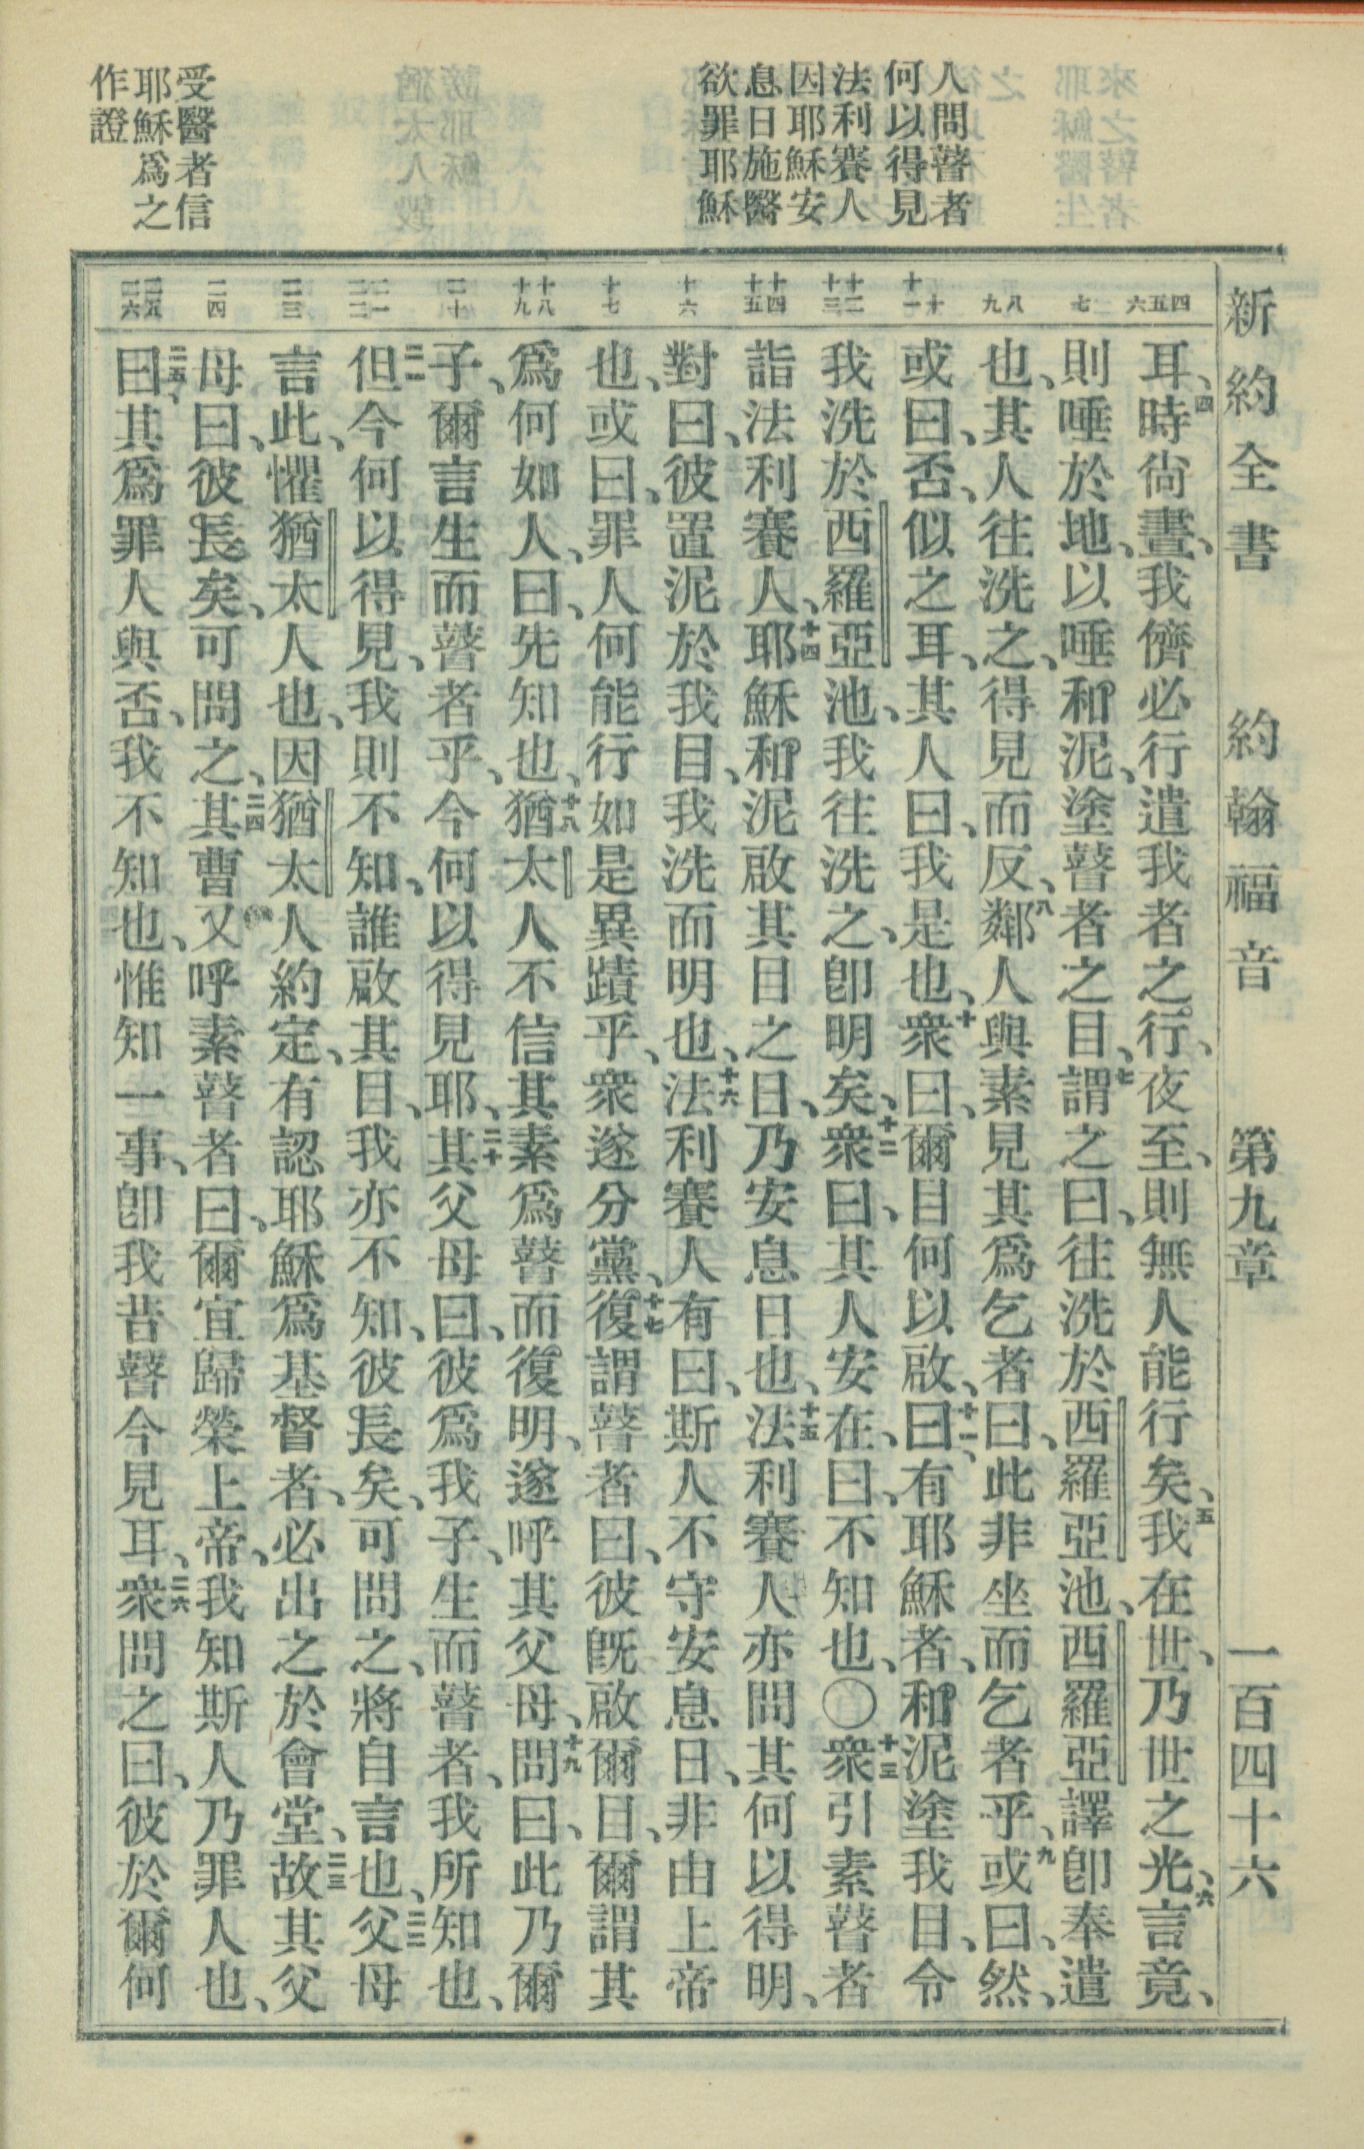 新約全書　約翰福音　第九章　一百四十六
人問瞽者
何以得見
法利賽人
因耶穌安
息日施醫
欲罪耶穌
受醫者信
耶穌爲之
作證
四 五 六
七
八 九
十 十一
十二 十三
十四 十五
十六
十七
十八 十九
二十
二一 二二
二三
二四
二五 二六
耳、四時尙晝、我儕必行遣我者之行、夜至、則無人能行矣、五我在世、乃世之光、六言竟、
則唾於地、以唾和泥、塗瞽者之目、七謂之曰、往洗於西羅亞池、西羅亞譯卽奉遣
也、其人往洗之、得見而反、八鄰人與素見其爲乞者曰、此非坐而乞者乎、九或曰、然、
或曰、否、似之耳、其人曰、我是也、十衆曰、爾目何以啟、十一曰、有耶穌者、和泥塗我目、令
我洗於西羅亞池、我往洗之、卽明矣、十二衆曰、其人安在、曰、不知也、〇十三衆引素瞽者
詣法利賽人、十四耶穌和泥啟其目之日、乃安息日也、十五法利賽人亦問其何以得明、
對曰、彼置泥於我目、我洗而明也、十六法利賽人有曰、斯人不守安息日、非由上帝
也、或曰、罪人何能行如是異蹟乎、衆遂分黨、十七復謂瞽者曰、彼旣啟爾目、爾謂其
爲何如人、曰、先知也、十八猶太人不信其素爲瞽而復明、遂呼其父母、十九問曰、此乃爾
子、爾言生而瞽者乎、今何以得見耶、二十其父母曰、彼爲我子、生而瞽者、我所知也、
二一但今何以得見、我則不知、誰啟其目、我亦不知、彼長矣、可問之、將自言也、二二父母
言此、懼猶太人也、因猶太人約定、有認耶穌爲基督者、必出之於會堂、二三故其父
母曰、彼長矣、可問之、二四其曹又呼素瞽者曰、爾宜歸榮上帝、我知斯人乃罪人也、
二五曰、其爲罪人與否、我不知也、惟知一事、卽我昔瞽今見耳、二六衆問之曰、彼於爾何